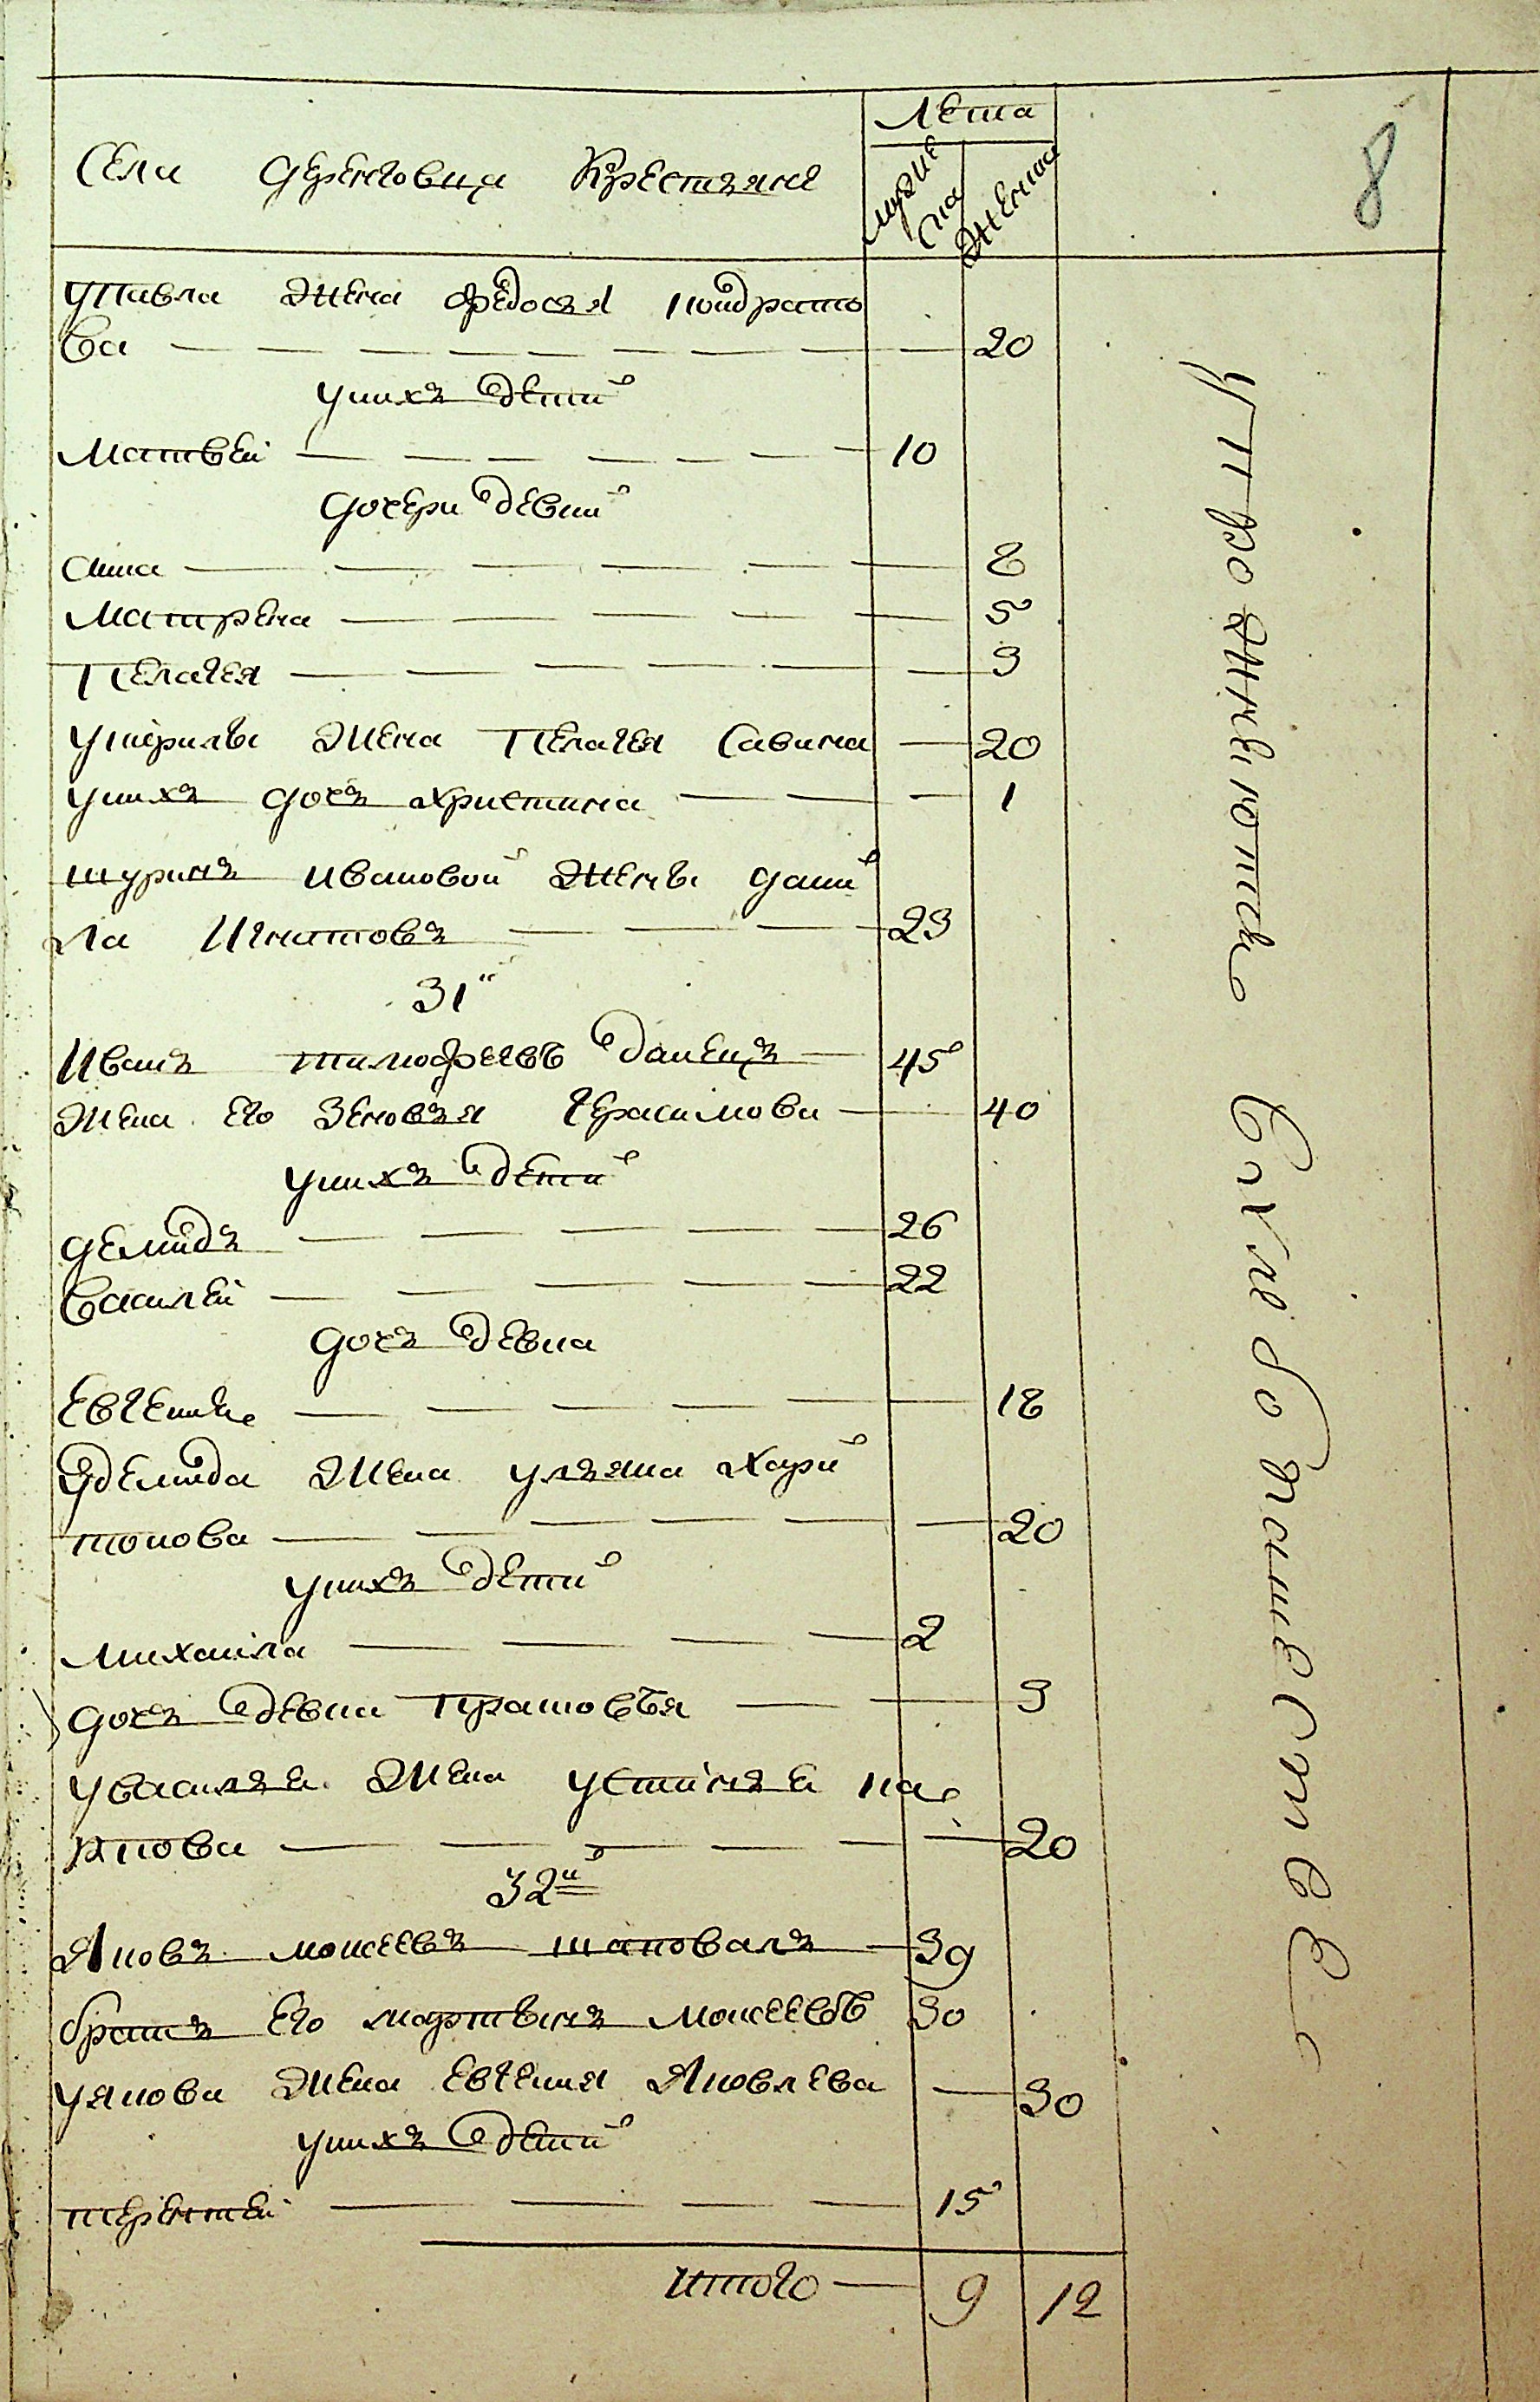 Лета
8
Села Деренговца Крестьяне
мужес
ка
женска
У Павла жена Федосья Кондрато
ва 20
у них дети
Матвей 10
дочери девки
Анна 8
Матрена 5
Пелагея 3
У Кирилы жена Пелагея Савина 20
у них дочь Христина 1
шурин Ивановой жены Дани
ла Игнатовъ 23
31й
Иванъ Тимофеевъ Данецъ 45
жена его Зеновья Герасимова 40
у нихъ дети
Демидъ 26
Василей 22
дочь девка
Евгения 18
У Демида жена Ульяна Хари
тонова 20
у нихъ дети
Михаила 2
дочь девка Прасковья 3
У Василья жена Устинья Ка
рпова 20
32й
Яковъ Моисеевъ Шаповалъ 39
братъ его Мартынъ Моисеевъ 30
У Якова жена Евгения Яковлева 30
у нихъ дети
Терентей 15
Итого 9 12